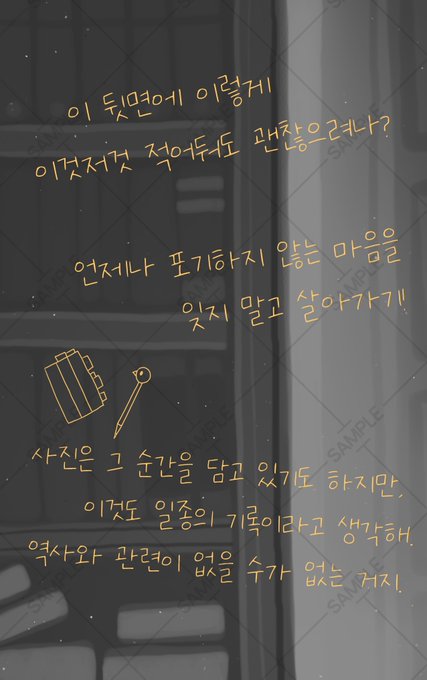 이 뒷면에 이렇게
이것저것 적어둬도 괜찮으려나?
언제나 포기하지 않는 마음을
잊지 말고 살아가기!
사진은 그 순간을 담고 있기도 하지만,
이것도 일종의 기록이라고 생각해.
역사와 관련이 없을 수가 없는 거지.
SAMPLE